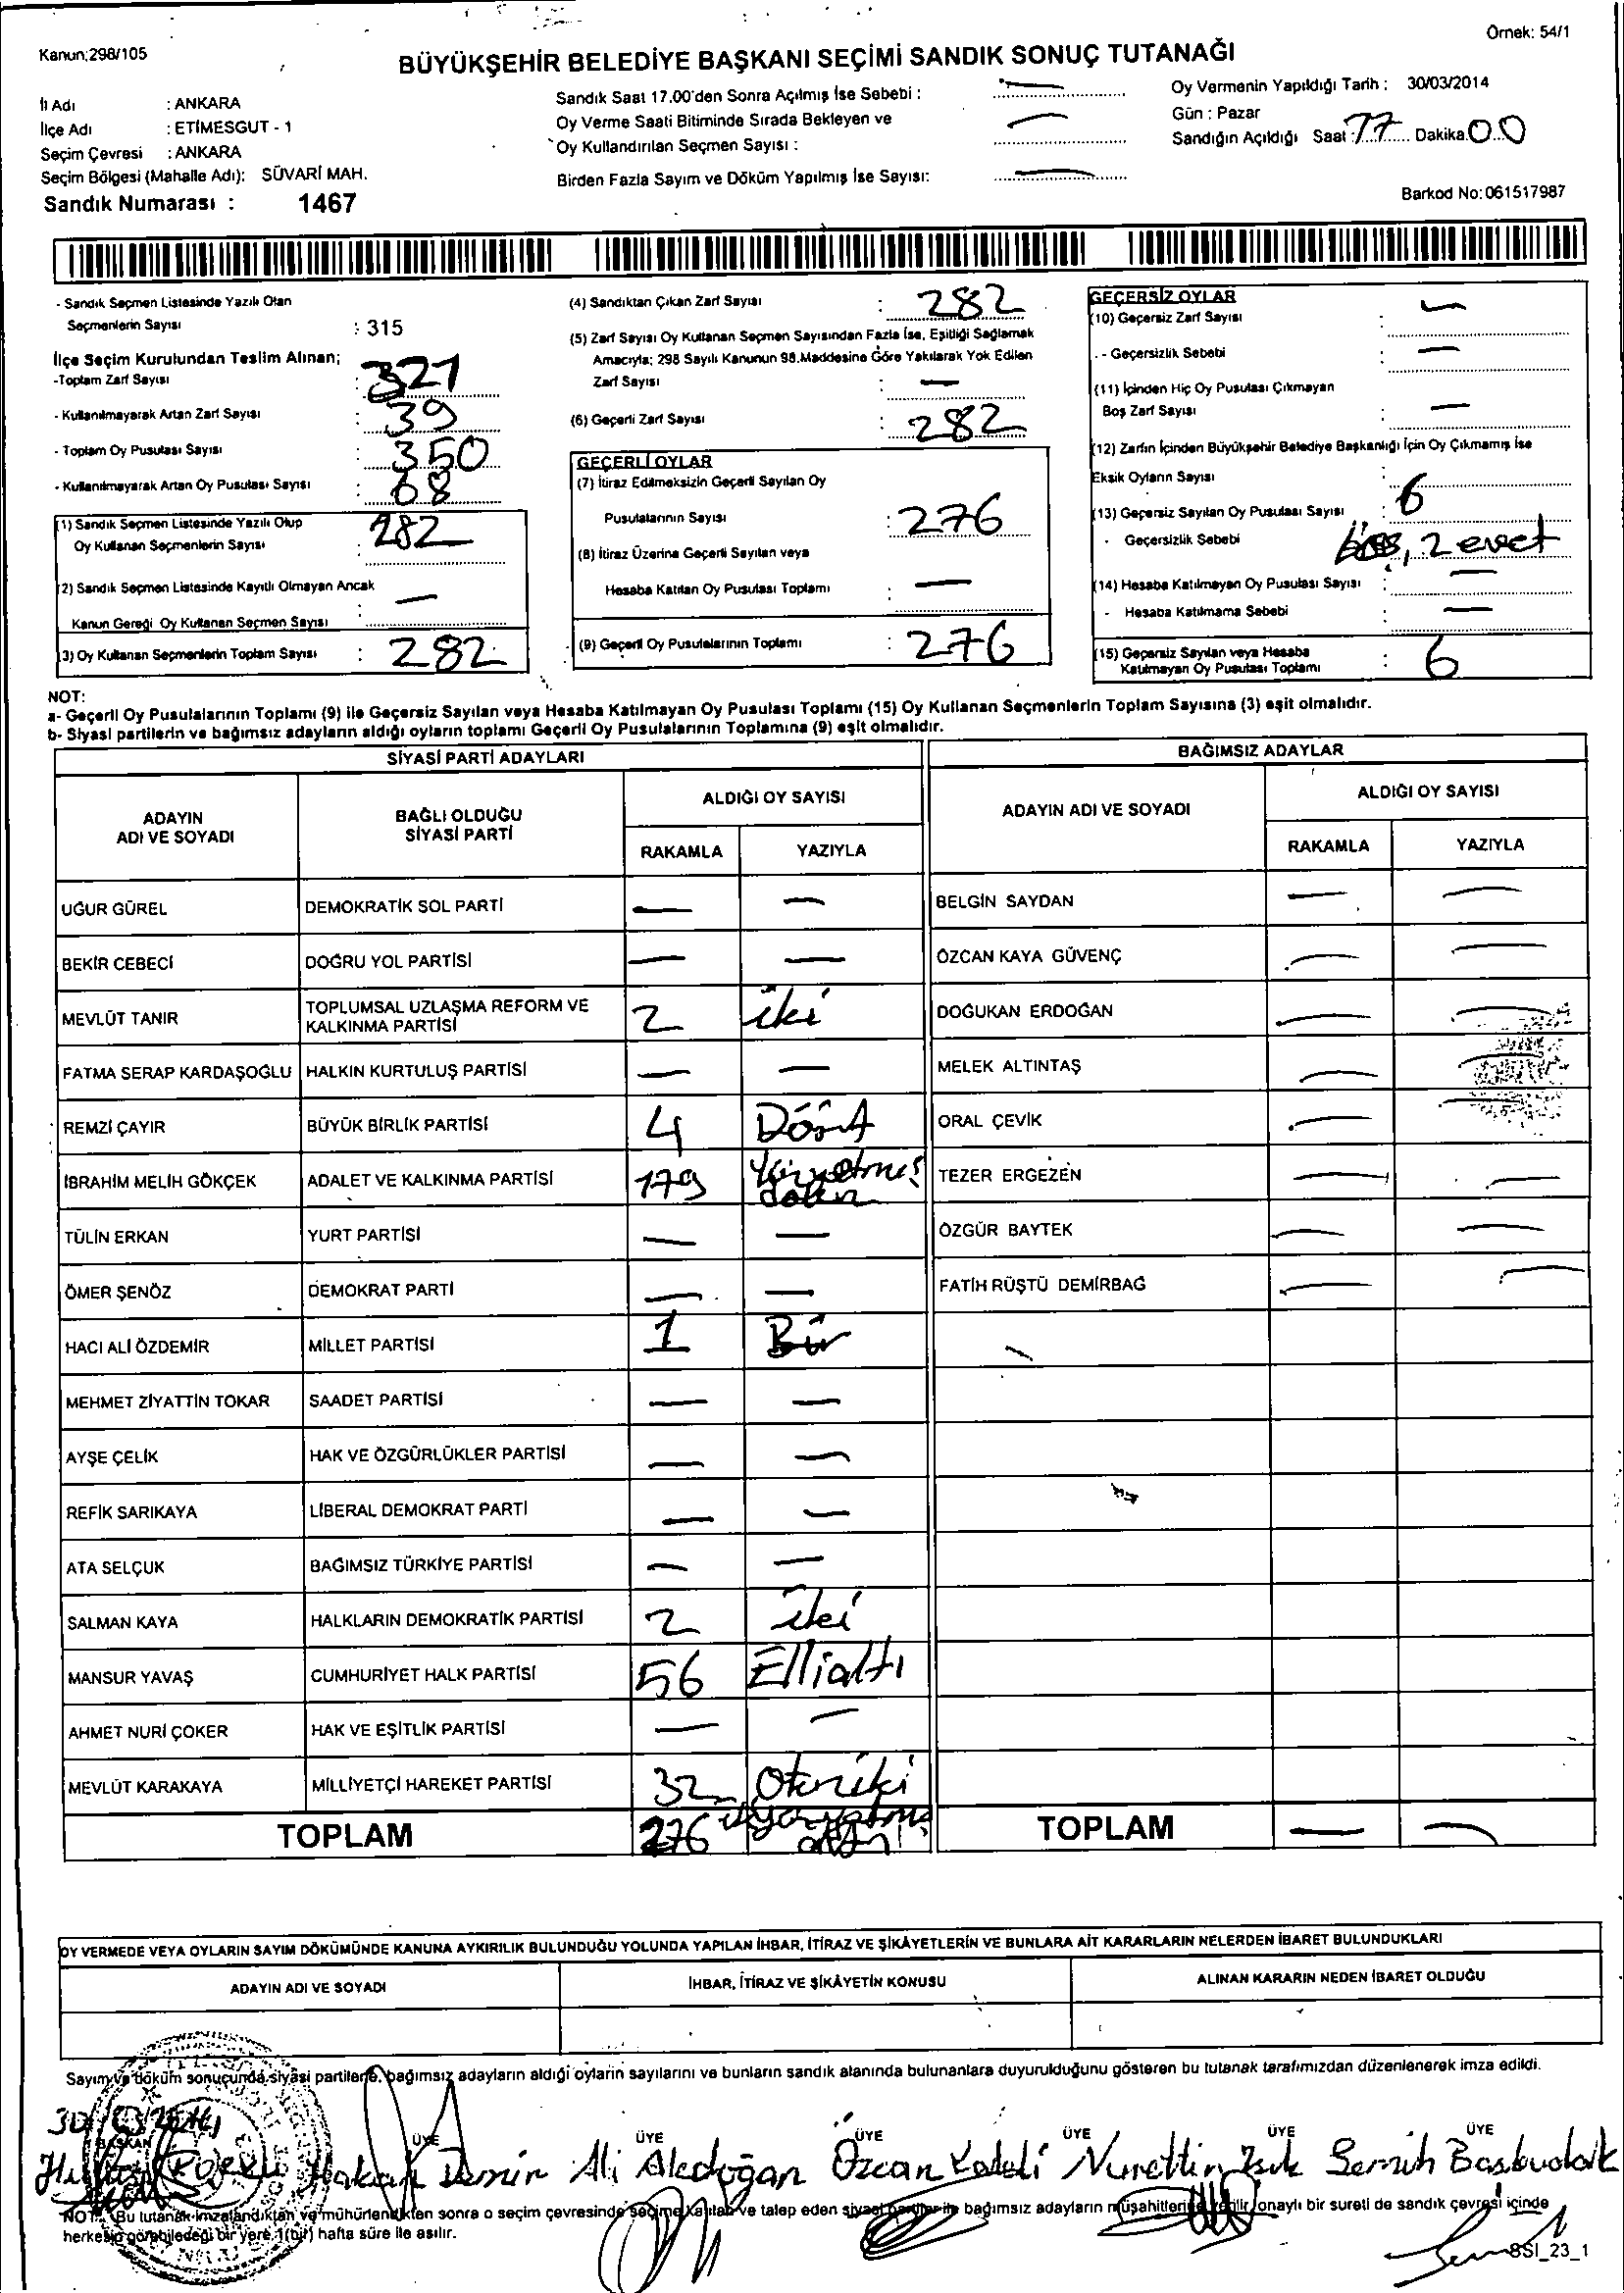 Örnek: 54/1
Kanun:298/105
BÜYÜKŞEHİR BELEDİYE BAŞKANI SEÇİMİ SANDIK SONUÇ TUTANAĞI
İl Adı : ANKARA
İlçe Adı : ETİMESGUT - 1
Seçim Çevresi : ANKARA
Seçim Bölgesi (Mahalle Adı): SÜVARİ MAH.
Sandık Numarası : 1467
Sandık Saat 17.00'den Sonra Açılmış İse Sebebi : —
Oy Verme Saati Bitiminde Sırada Bekleyen ve
Oy Kullandırılan Seçmen Sayısı : —
Birden Fazla Sayım ve Döküm Yapılmış İse Sayısı: —
Oy Vermenin Yapıldığı Tarih : 30/03/2014
Gün : Pazar
Sandığın Açıldığı Saat : 17 Dakika 00
Barkod No: 061517987
- Sandık Seçmen Listesinde Yazılı Olan
Seçmenlerin Sayısı : 315
İlçe Seçim Kurulundan Teslim Alınan;
-Toplam Zarf Sayısı : 321
- Kullanılmayarak Artan Zarf Sayısı : 39
- Toplam Oy Pusulası Sayısı : 350
- Kullanılmayarak Artan Oy Pusulası Sayısı : 68
(1) Sandık Seçmen Listesinde Yazılı Olup
Oy Kullanan Seçmenlerin Sayısı : 282
(2) Sandık Seçmen Listesinde Kayıtlı Olmayan Ancak
Kanun Gereği Oy Kullanan Seçmen Sayısı : —
(3) Oy Kullanan Seçmenlerin Toplam Sayısı : 282
(4) Sandıktan Çıkan Zarf Sayısı : 282
(5) Zarf Sayısı Oy Kullanan Seçmen Sayısından Fazla İse, Eşitliği Sağlamak
Amacıyla; 298 Sayılı Kanunun 98.Maddesine Göre Yakılarak Yok Edilen
Zarf Sayısı : —
(6) Geçerli Zarf Sayısı : 282
GEÇERLİ OYLAR
(7) İtiraz Edilmeksizin Geçerli Sayılan Oy
Pusulalarının Sayısı : 276
(8) İtiraz Üzerine Geçerli Sayılan veya
Hesaba Katılan Oy Pusulası Toplamı : —
(9) Geçerli Oy Pusulalarının Toplamı : 276
GEÇERSİZ OYLAR
(10) Geçersiz Zarf Sayısı : —
- Geçersizlik Sebebi : —
(11) İçinden Hiç Oy Pusulası Çıkmayan
Boş Zarf Sayısı : —
(12) Zarfın İçinden Büyükşehir Belediye Başkanlığı İçin Oy Çıkmamış İse
Eksik Oyların Sayısı :
(13) Geçersiz Sayılan Oy Pusulası Sayısı : 6
- Geçersizlik Sebebi : boş, 2 evet
(14) Hesaba Katılmayan Oy Pusulası Sayısı : —
- Hesaba Katılmama Sebebi : —
(15) Geçersiz Sayılan veya Hesaba
Katılmayan Oy Pusulası Toplamı : 6
NOT:
a- Geçerli Oy Pusulalarının Toplamı (9) ile Geçersiz Sayılan veya Hesaba Katılmayan Oy Pusulası Toplamı (15) Oy Kullanan Seçmenlerin Toplam Sayısına (3) eşit olmalıdır.
b- Siyasi partilerin ve bağımsız adayların aldığı oyların toplamı Geçerli Oy Pusulalarının Toplamına (9) eşit olmalıdır.
SİYASİ PARTİ ADAYLARI
ADAYIN ADI VE SOYADI BAĞLI OLDUĞU SİYASİ PARTİ ALDIĞI OY SAYISI
RAKAMLA YAZIYLA
UĞUR GÜREL DEMOKRATİK SOL PARTİ — —
BEKİR CEBECİ DOĞRU YOL PARTİSİ — —
MEVLÜT TANIR TOPLUMSAL UZLAŞMA REFORM VE KALKINMA PARTİSİ 2 iki
FATMA SERAP KARDAŞOĞLU HALKIN KURTULUŞ PARTİSİ — —
REMZİ ÇAYIR BÜYÜK BİRLİK PARTİSİ 4 Dört
İBRAHİM MELİH GÖKÇEK ADALET VE KALKINMA PARTİSİ 179 Yüzyetmiş dokuz
TÜLİN ERKAN YURT PARTİSİ — —
ÖMER ŞENÖZ DEMOKRAT PARTİ — —
HACI ALİ ÖZDEMİR MİLLET PARTİSİ 1 Bir
MEHMET ZİYATTİN TOKAR SAADET PARTİSİ — —
AYŞE ÇELİK HAK VE ÖZGÜRLÜKLER PARTİSİ — —
REFİK SARIKAYA LİBERAL DEMOKRAT PARTİ — —
ATA SELÇUK BAĞIMSIZ TÜRKİYE PARTİSİ — —
SALMAN KAYA HALKLARIN DEMOKRATİK PARTİSİ 2 iki
MANSUR YAVAŞ CUMHURİYET HALK PARTİSİ 56 Ellialtı
AHMET NURİ ÇOKER HAK VE EŞİTLİK PARTİSİ — —
MEVLÜT KARAKAYA MİLLİYETÇİ HAREKET PARTİSİ 32 Otuziki
TOPLAM 276 ikiyüzyetmiş altı
BAĞIMSIZ ADAYLAR
ADAYIN ADI VE SOYADI ALDIĞI OY SAYISI
RAKAMLA YAZIYLA
BELGİN SAYDAN — —
ÖZCAN KAYA GÜVENÇ — —
DOĞUKAN ERDOĞAN — —
MELEK ALTINTAŞ — —
ORAL ÇEVİK — —
TEZER ERGEZEN — —
ÖZGÜR BAYTEK — —
FATİH RÜŞTÜ DEMİRBAĞ — —
TOPLAM — —
OY VERMEDE VEYA OYLARIN SAYIM DÖKÜMÜNDE KANUNA AYKIRILIK BULUNDUĞU YOLUNDA YAPILAN İHBAR, İTİRAZ VE ŞİKÂYETLERİN VE BUNLARA AİT KARARLARIN NELERDEN İBARET BULUNDUKLARI
ADAYIN ADI VE SOYADI İHBAR, İTİRAZ VE ŞİKÂYETİN KONUSU ALINAN KARARIN NEDEN İBARET OLDUĞU
Sayım ve döküm sonucunda siyasi partilerle, bağımsız adayların aldığı oyların sayılarını ve bunların sandık alanında bulunanlara duyurulduğunu gösteren bu tutanak tarafımızdan düzenlenerek imza edildi.
30/03/2014
BAŞKAN ÜYE ÜYE ÜYE ÜYE ÜYE ÜYE
Hakan Demir Ali Akdoğan Özcan Nurettin Işık Semih Başbudak
NOT: Bu tutanak imzalandıktan ve mühürlendikten sonra o seçim çevresinde seçime katılan ve talep eden siyasi partiler ile bağımsız adayların müşahitlerine verilir, onaylı bir sureti de sandık çevresi içinde
herkesin görebileceği bir yere 1(bir) hafta süre ile asılır.
SSI_23_1